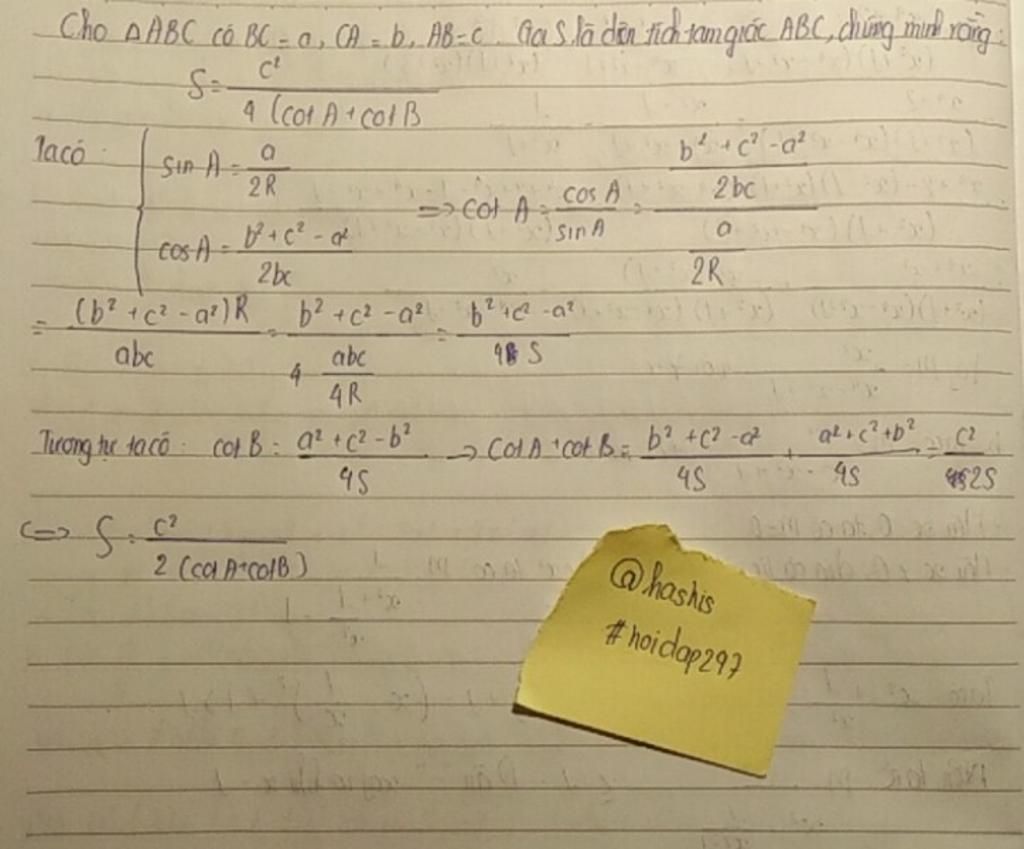 Cho △ABC có BC = a, CA = b, AB = c. Gọi S là diện tích tam giác ABC, chứng minh rằng:
S = c² / 4 (cot A + cot B
Ta có: { sin A = a / 2R
cos A = b² + c² - a² / 2bc
=> cot A = cos A / sin A = (b² + c² - a² / 2bc) / (a / 2R)
= (b² + c² - a²)R / abc = b² + c² - a² / 4 abc / 4R = b² + c² - a² / 4 S
Tương tự ta có: cot B = a² + c² - b² / 4S -> cot A + cot B = b² + c² - a² / 4S + a² + c² + b² / 4S = c² / 2S
<=> S = c² / 2 (cot A + cot B)
@hashis
#hoidap297